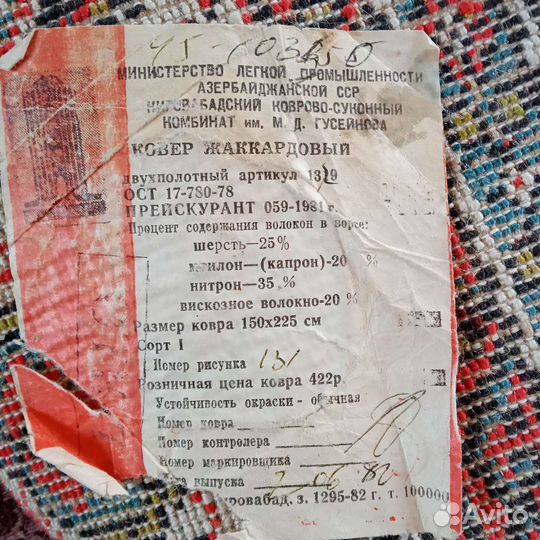 МИНИСТЕРСТВО ЛЕГКОЙ ПРОМЫШЛЕННОСТИ
АЗЕРБАЙДЖАНСКОЙ ССР
КИРОВАБАДСКИЙ КОВРОВО-СУКОННЫЙ
КОМБИНАТ им. М. Д. ГУСЕЙНОВА
КОВЕР ЖАККАРДОВЫЙ
двухполотный артикул
ОСТ 17-780-78
ПРЕЙСКУРАНТ 059-1981 г.
Процент содержания волокон в ворсе:
шерсть—25%
(капрон)-20 %
нитрон—35 %
вискозное волокно-20 %
Размер ковра 150х225 см
Сорт I
Номер рисунка 131
Розничная цена ковра 422р.
Устойчивость окраски - обычная
Номер ковра
Номер контролера
Номер маркировщика
выпуска
з. 1295-82 г. т. 100000
Avito